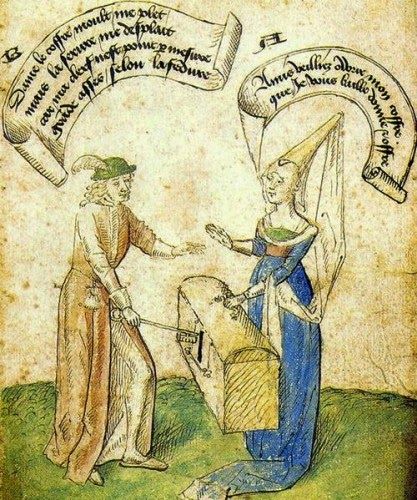 B
Dame le coffre moult me plet
mais la serure me desplait
car ma clef nest point p mesure
grande asses selon la
A
Amis veilliez mon coffre
que Je vous baille donne offre